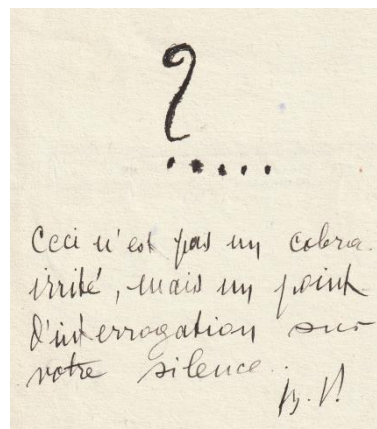 ?.....
Ceci n'est pas un cobra
irrité, mais un point
d'interrogation sur
votre silence..
B. V.